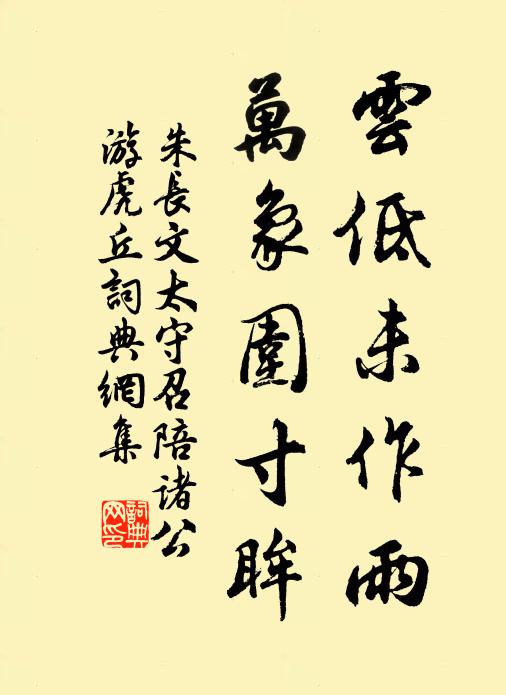 雲低未作雨
萬象圍寸眸
朱長文太守召陪諸公
游虎丘詞典網集
詞典
网印